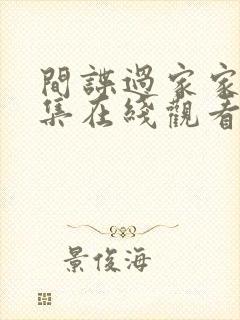 間諜過家家
集在綫觀看
景俊海